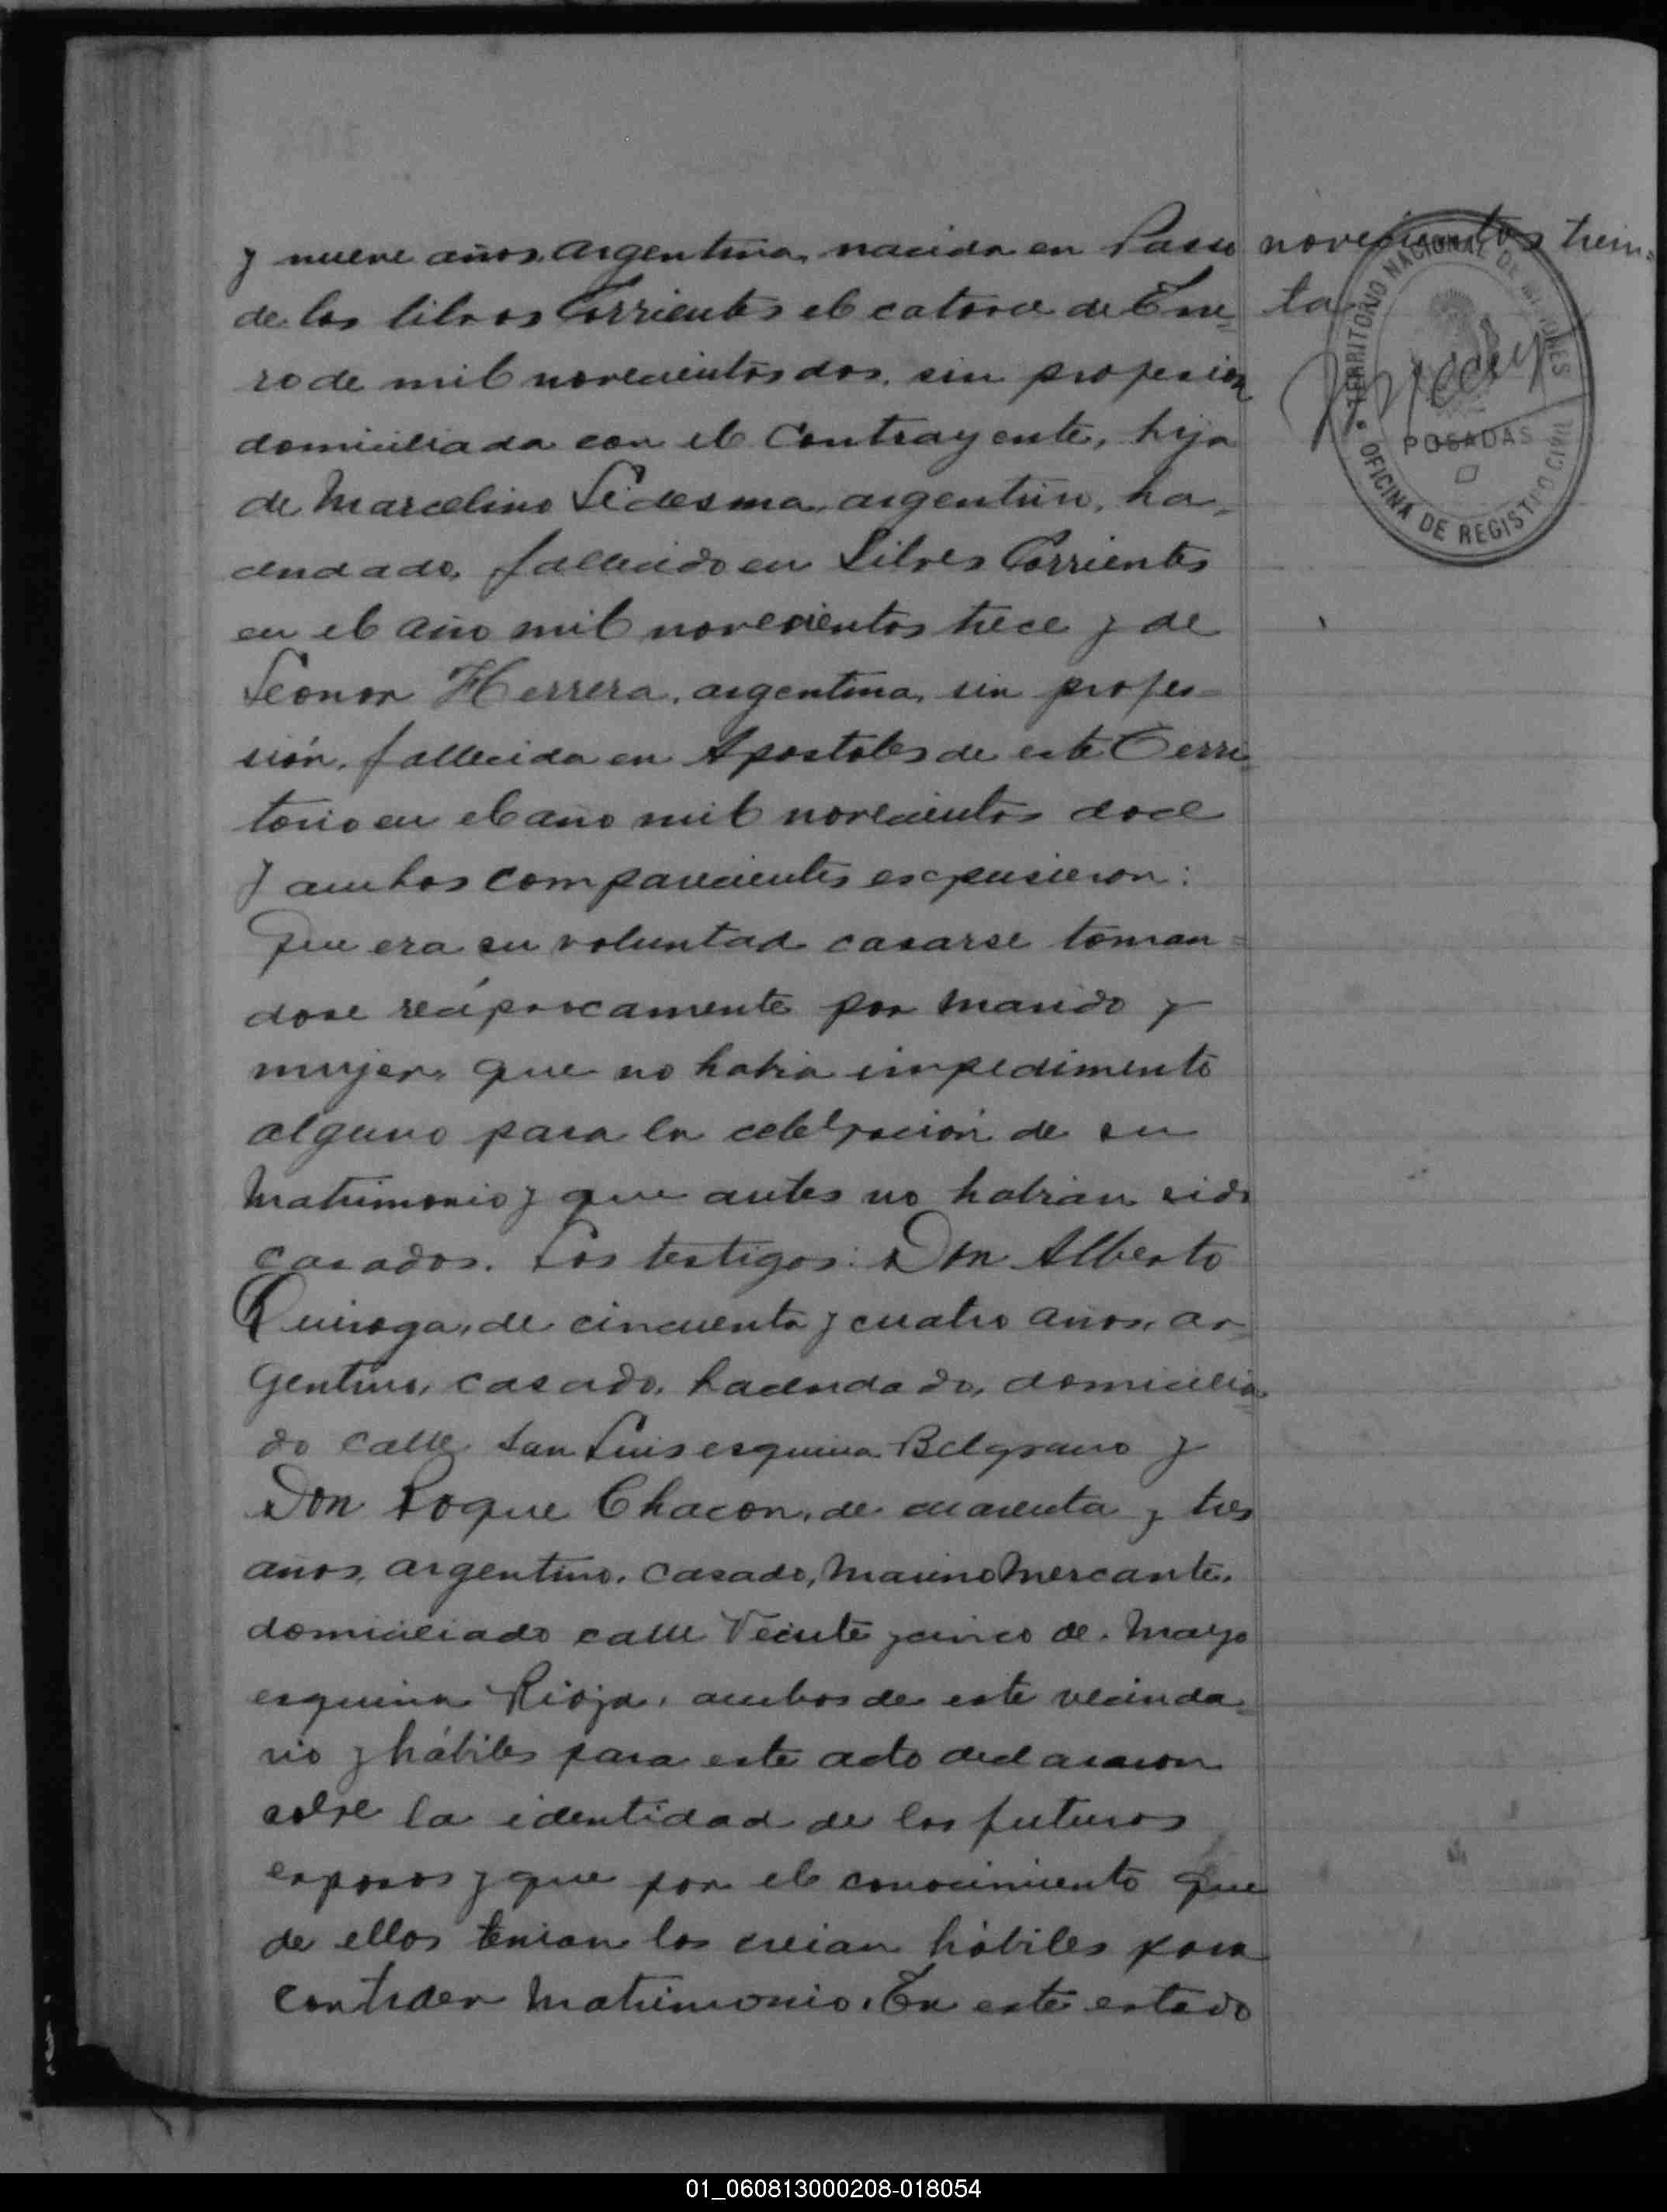 y nueve años, argentina, nacida en Paso
de los libros Corrientes el catorce de Ene=
ro de mil novecientos dos, sin profesión
domiciliada con el Contrayente, hija
de Marcelino Ledesma, argentino, ha=
cendado, fallecido en Libres Corrientes
en el año mil novecientos trece y de
Leonor Herrera, argentina, sin profe=
sión, fallecida en Apostoles de este Terri=
torio en el año mil novecientos doce
y ambos comparecientes expusieron:
Que era su voluntad casarse toman=
dose recíprocamente por marido y
mujer, que no habia impedimento
alguno para la celebración de su
Matrimonio y que antes no habian sido
casados. Los testigos: Don Alberto
Quiroga, de cincuenta y cuatro años, ar=
gentino, casado, hacendado, domicilia=
do calle San Luis esquina Belgrano y
Don Roque Chacon, de cuarenta y tres
años, argentino, casado, Marino Mercante,
domiciliado calle Veinte y cinco de Mayo
esquina Rioja, ambos de este vecinda=
rio y hábiles para este acto declararon
sobre la identidad de los futuros
esposos y que por el conocimiento que
de ellos tenian los creian hábiles para
contraer Matrimonio. En este estado
novecientos trein=
ta
TERRITORIO NACIONAL DE MISIONES
POSADAS
OFICINA DE REGISTRO CIVIL
01_060813000208-018054